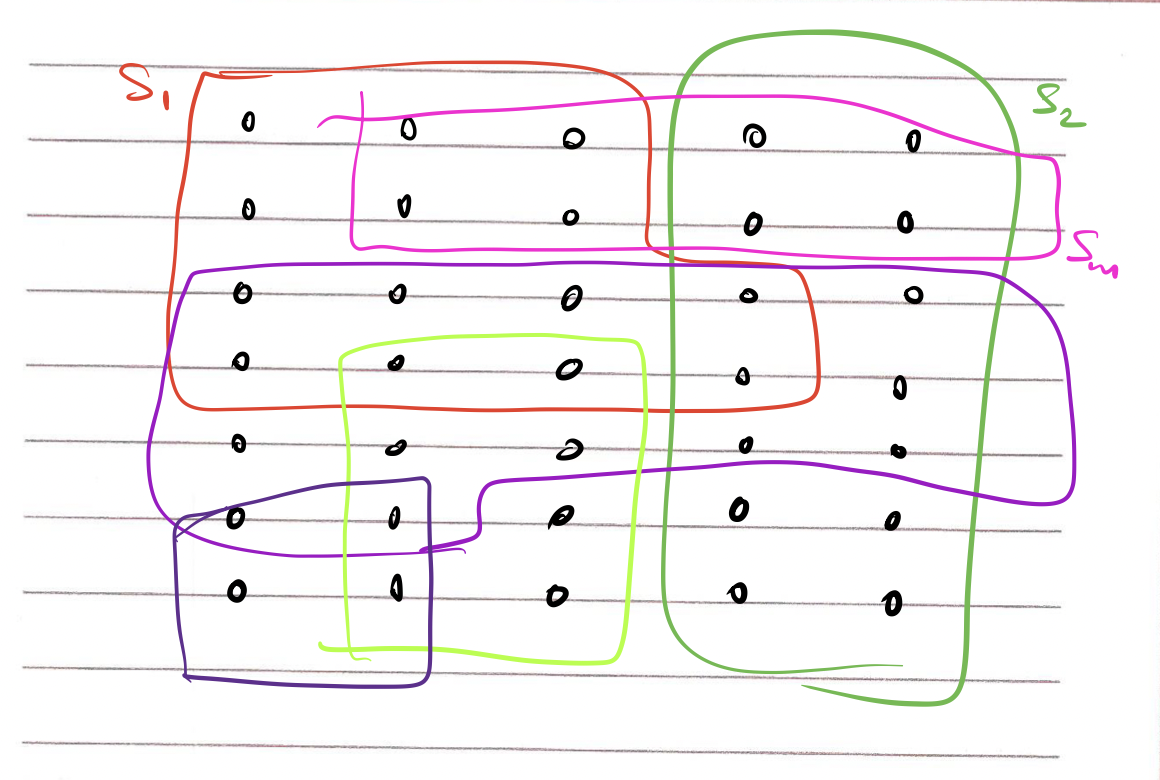 S₁
S₂
Sₘ